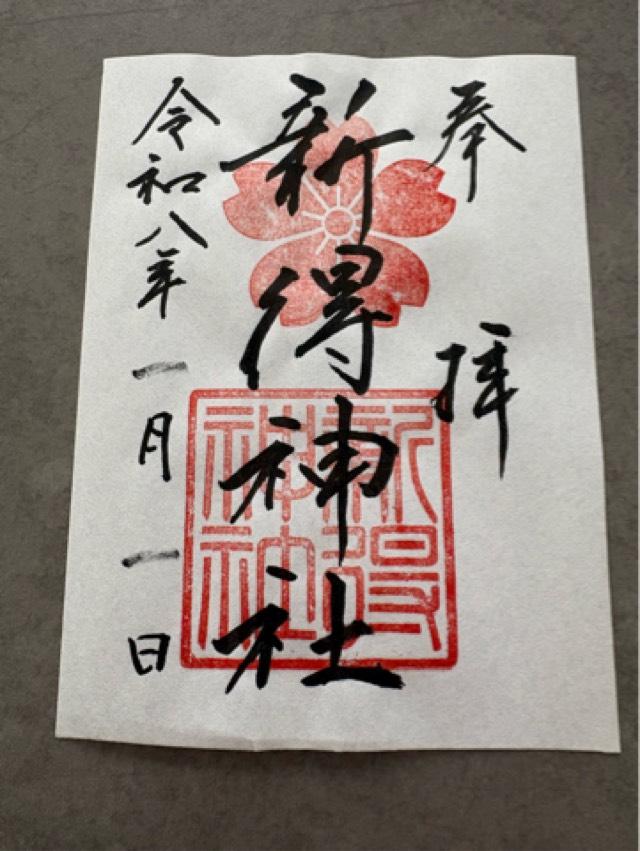 奉拝
新得神社
新得神社
令和八年一月一日